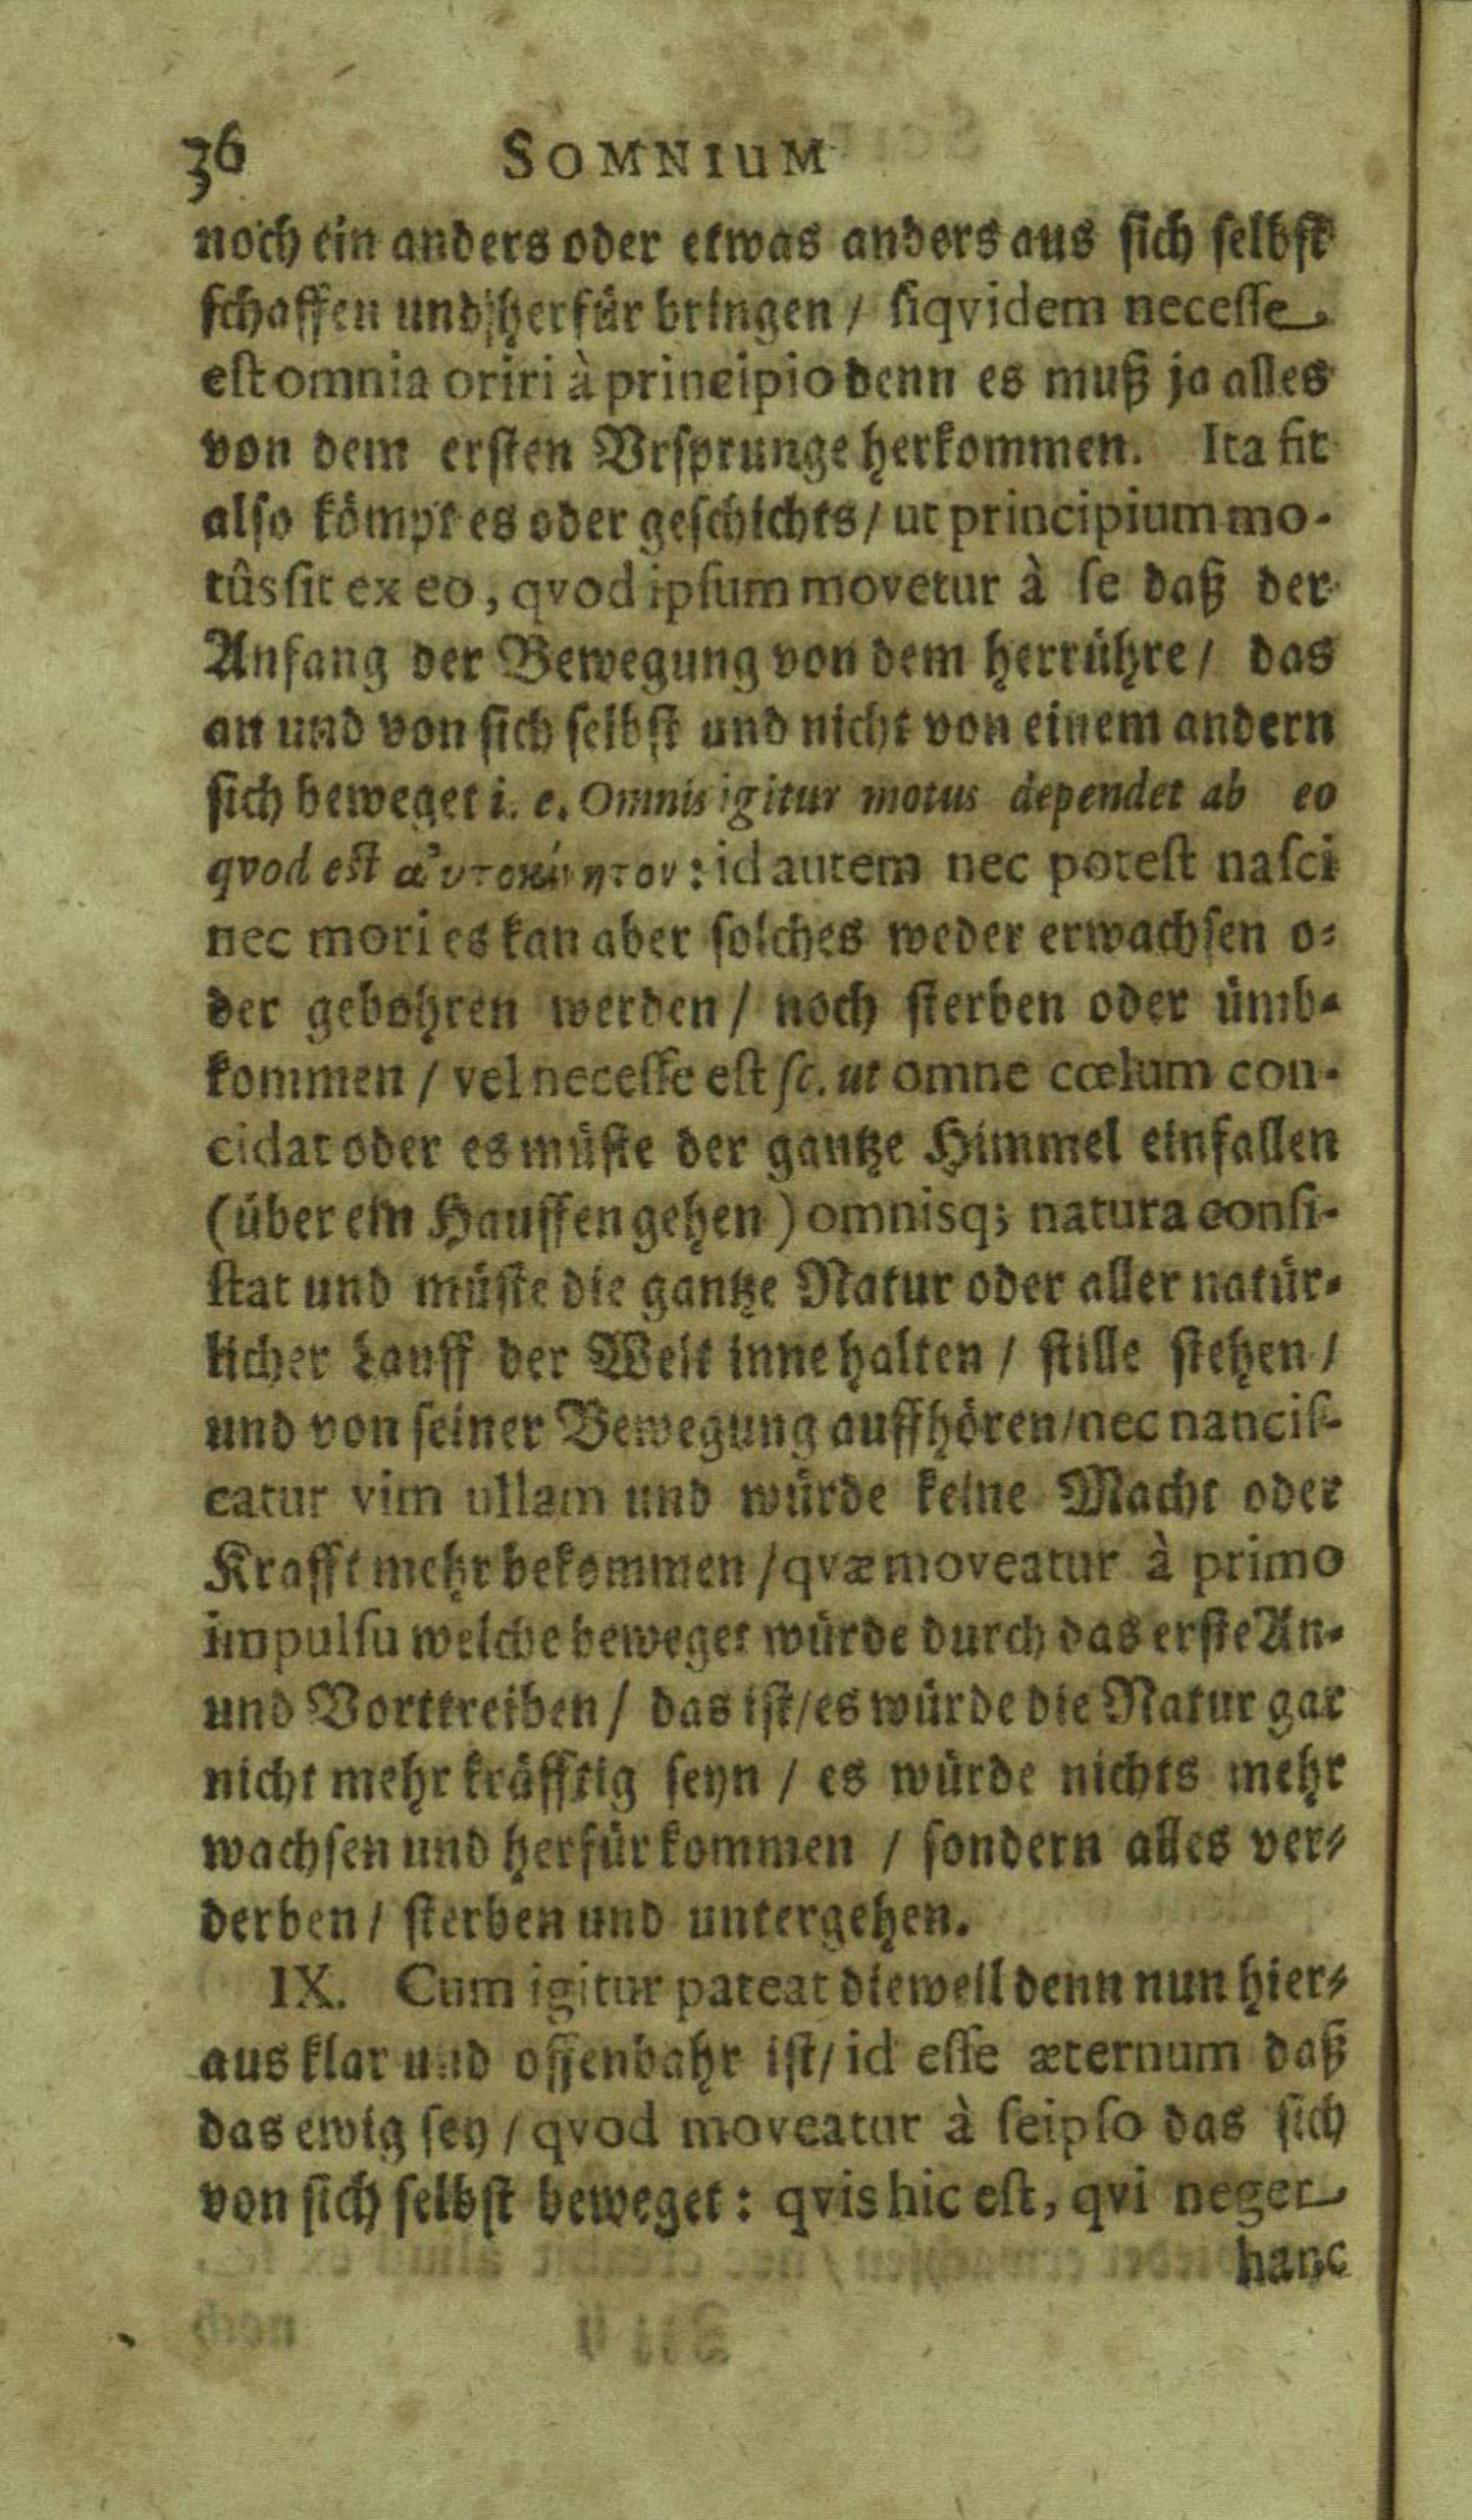 36 SOMNIUM
noch ein anders oder etwas anders aus sich selbst
schaffen und herfür bringen / siqvidem necesse
est omnia oriri à principio denn es muß ja alles
von dem ersten Vrsprunge herkommen. Ita fit
also kömpt es oder geschichts / ut principium mo-
tûs sit ex eo, qvod ipsum movetur à se daß der
Anfang der Bewegung von dem herrühre / das
an und von sich selbst und nicht von einem andern
sich beweget i. e. Omnis igitur motus dependet ab eo
qvod est ἀυτοκίνητον: id autem nec potest nasci
nec mori es kan aber solches weder erwachsen o-
der gebohren werden / noch sterben oder ümb-
kommen / vel necesse est sc. ut omne cœlum con-
cidat oder es müste der gantze Himmel einfallen
(über ein Hauffen gehen) omnisq; natura consi-
stat und müste die gantze Natur oder aller natür-
licher Lauff der Welt inne halten / stille stehen /
und von seiner Bewegung auffhören / nec nancis-
catur vim ullam und würde keine Macht oder
Krafft mehr bekommen / qvæ moveatur à primo
impulsu welche beweget würde durch das erste An-
und Vorttreiben / das ist / es würde die Natur gar
nicht mehr kräfftig seyn / es würde nichts mehr
wachsen und herfür kommen / sondern alles ver-
derben / sterben und untergehen.
IX. Cum igitur pateat dieweil denn nun hier-
aus klar und offenbahr ist / id esse æternum daß
das ewig sey / qvod moveatur à seipso das sich
von sich selbst beweget: qvis hic est, qvi neget
hanc